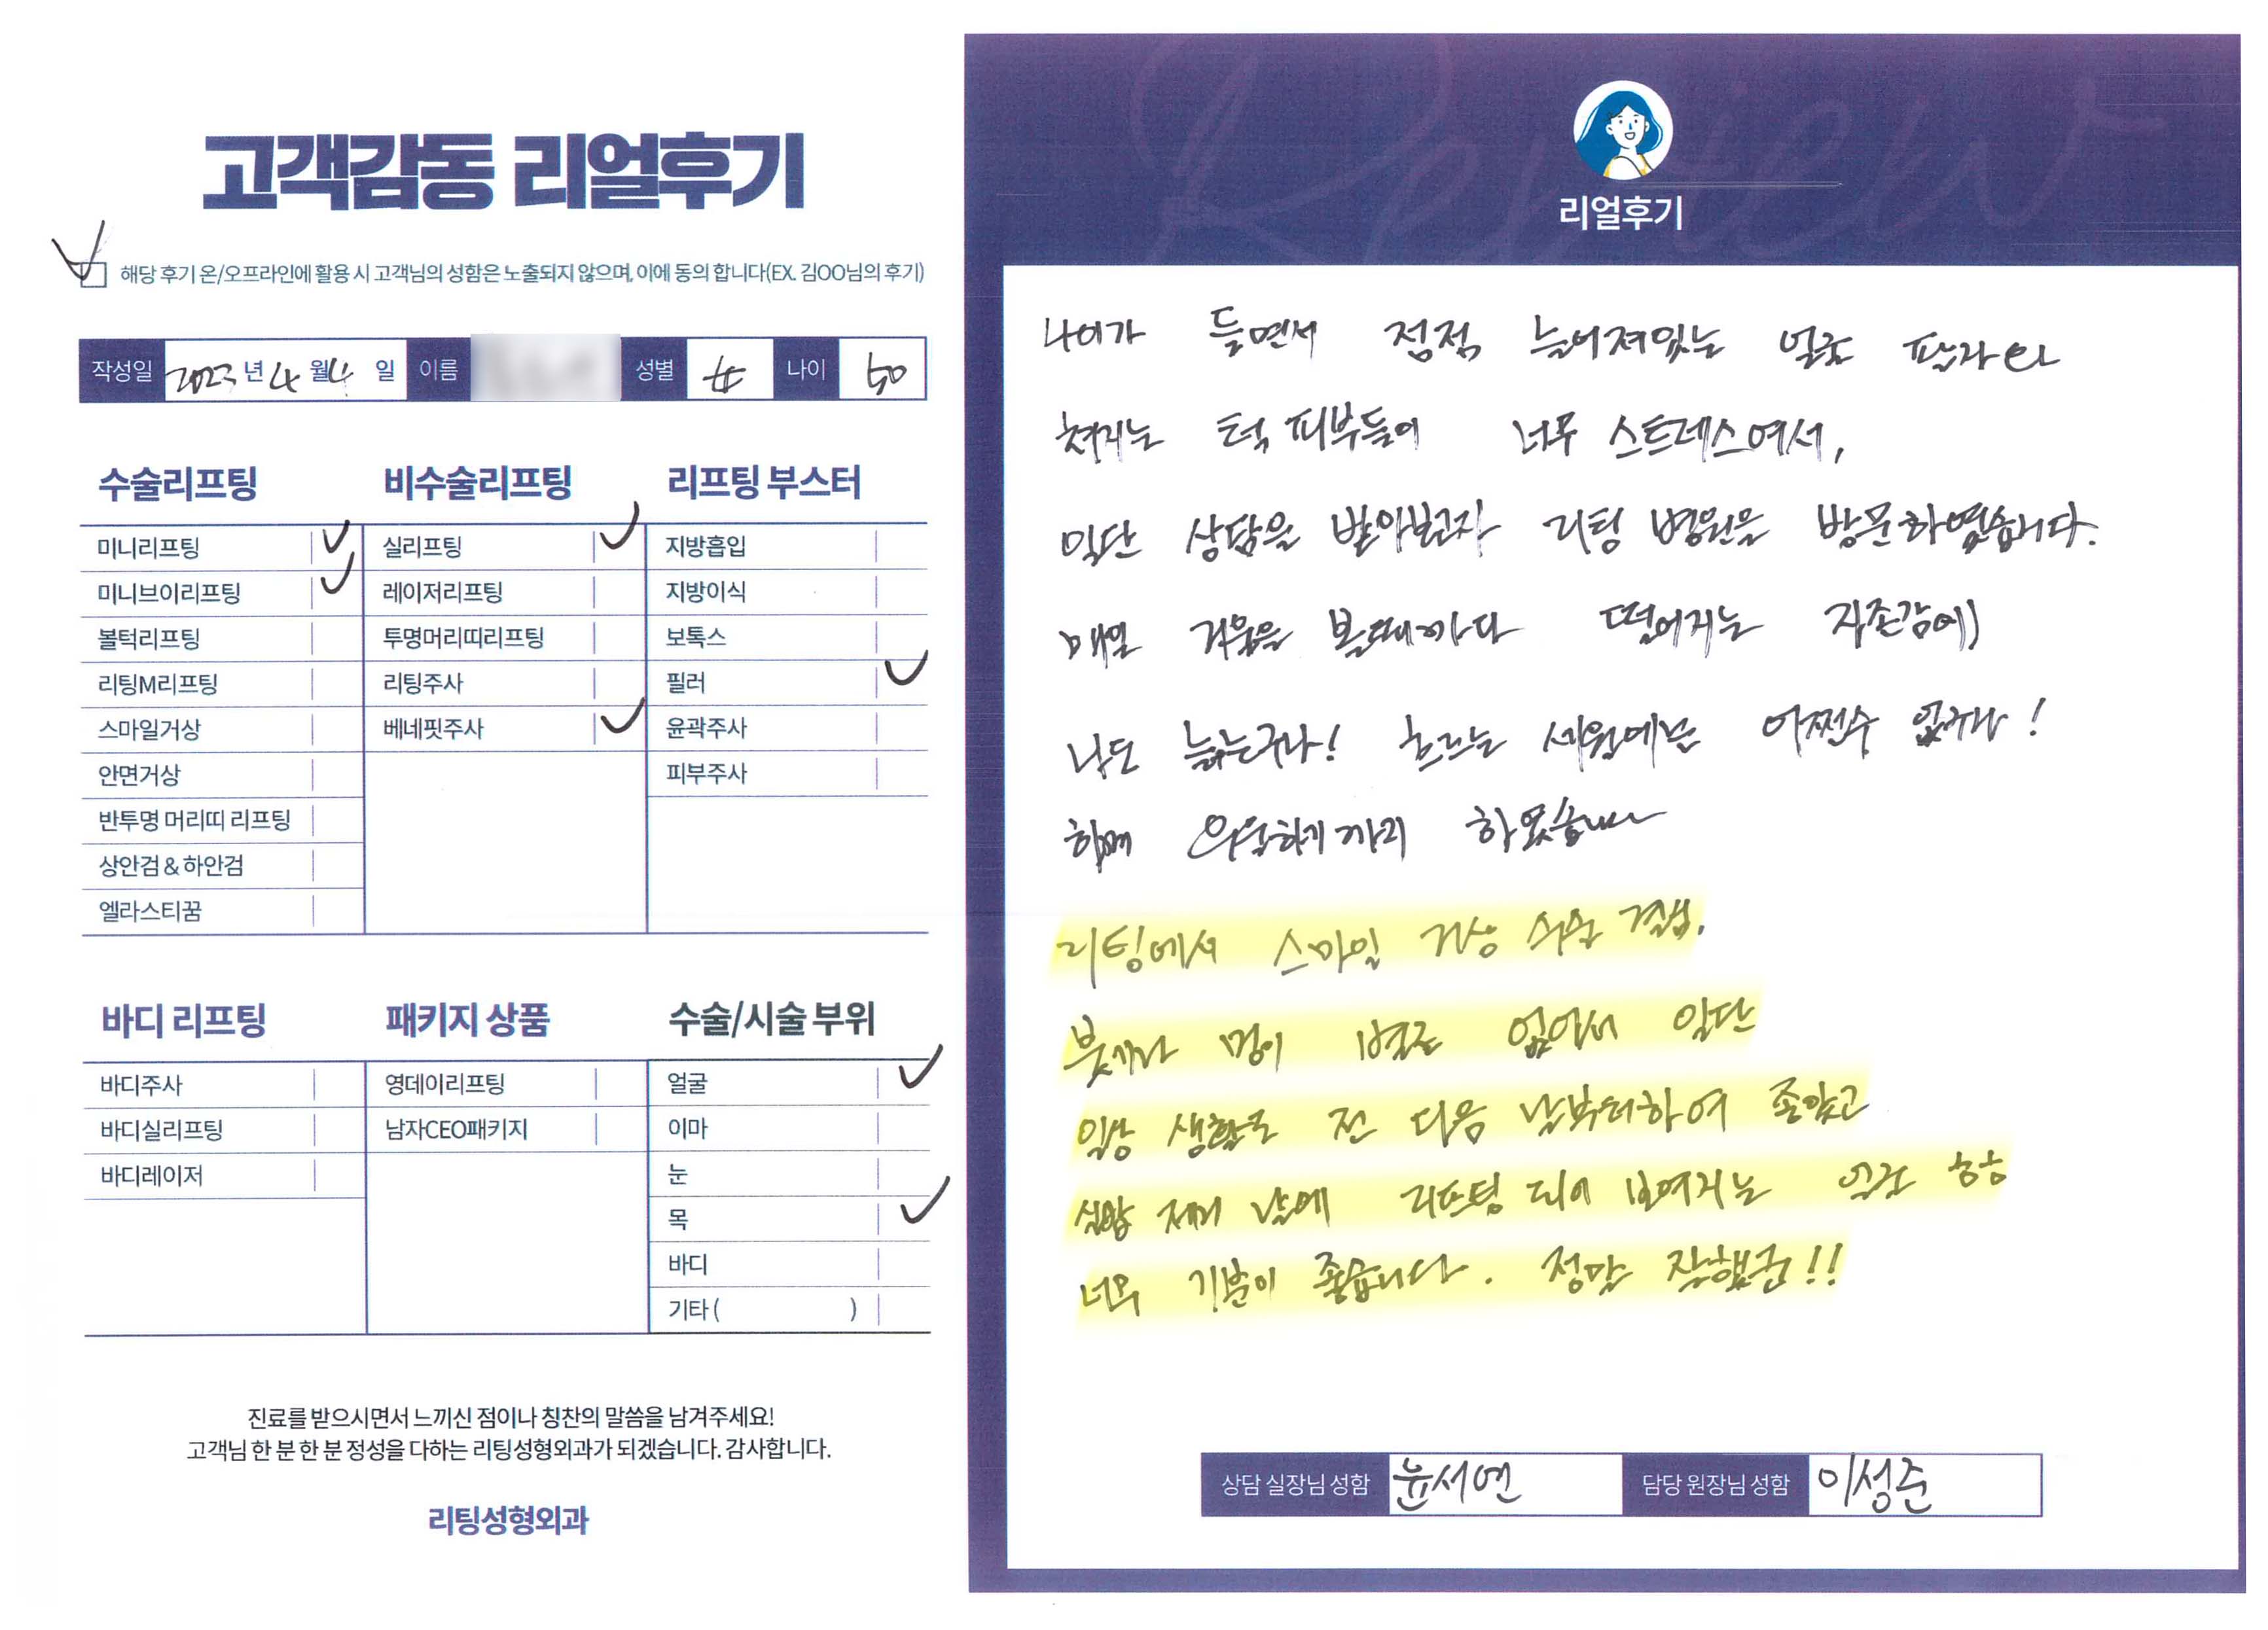 고객감동 리얼후기
해당 후기 온/오프라인에 활용 시 고객님의 성함은 노출되지 않으며, 이에 동의 합니다(EX. 김OO님의 후기)
작성일 2023 년 4 월 4 일 이름 성별 女 나이 50
수술리프팅
미니리프팅
미니브이리프팅
볼턱리프팅
리팅M리프팅
스마일거상
안면거상
반투명 머리띠 리프팅
상안검 & 하안검
엘라스티꿈
비수술리프팅
실리프팅
레이저리프팅
투명머리띠리프팅
리팅주사
베네핏주사
리프팅 부스터
지방흡입
지방이식
보톡스
필러
윤곽주사
피부주사
바디 리프팅
바디주사
바디실리프팅
바디레이저
패키지 상품
영데이리프팅
남자CEO패키지
수술/시술 부위
얼굴
이마
눈
목
바디
기타 ( )
진료를 받으시면서 느끼신 점이나 칭찬의 말씀을 남겨주세요!
고객님 한 분 한 분 정성을 다하는 리팅성형외과가 되겠습니다. 감사합니다.
리팅성형외과
Review
리얼후기
나이가 들면서 점점 늘어져있는 얼굴
쳐지는 턱 피부들이 너무 스트레스여서,
일단 상담을 받아보고자 리팅 병원을 방문하였습니다.
매일 거울을 볼때마다 떨어지는 자존감에
나도 늙는구나! 흐르는 세월에는 어쩔수 없구나!
하며 우울하기까지 하였습니다
리팅에서 스마일 거상 수술 결심.
붓기나 멍이 별로 없어서 일단
일상 생활로 전 다음 날부터하여 좋았고
실밥 제거 날에 리프팅 되어 보여지는 얼굴
너무 기분이 좋습니다. 정말 잘했군!!
상담 실장님 성함 윤서연 담당 원장님 성함 이성준